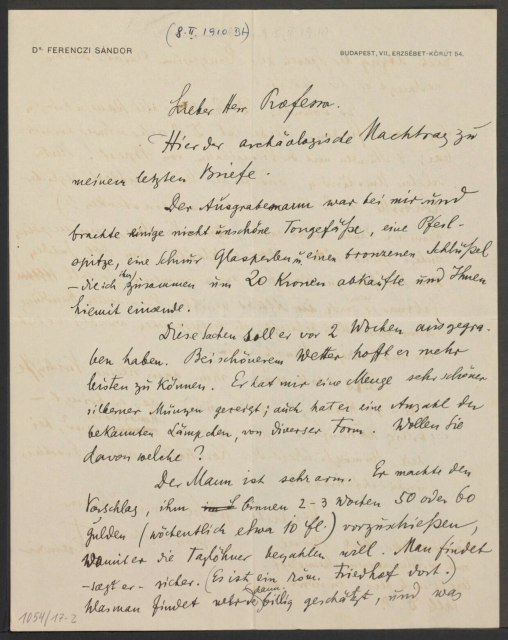 (8.II.1910 Bp)
Dr. FERENCZI SÁNDOR
BUDAPEST, VII., ERZSÉBET-KÖRÚT 54.
Lieber Herr Professor.
Hier der archäologische Nachtrag zu
meinem letzten Briefe.
Der Ausgrabemann war bei mir und
brachte einige nicht unschöne Tongefäße, eine Pfeil-
spitze, eine Schnur Glasperlen u. einen bronzenen Schlüssel
– die ich ihm zusammen um 20 Kronen abkaufte und Ihnen
hiemit einsende.
Diese Sachen soll er vor 2 Wochen ausgegra-
ben haben. Bei schönerem Wetter hofft er mehr
leisten zu können. Er hat mir eine Menge sehr schöner
silberner Münzen gezeigt; auch hat er eine Anzahl der
bekannten Lämpchen, von diverser Form. Wollen Sie
davon welche?
Der Mann ist sehr arm. Er machte den
Vorschlag, ihm binnen 2-3 Wochen 50 oder 60
Gulden (wöchentlich etwa 10 fl.) vorzuschießen,
damit er die Taglöhner bezahlen will. Man findet
– sagt er – sicher. (Es ist ein röm. Friedhof dort.)
Was man findet wird dann billig geschätzt, und was
1054/17-2